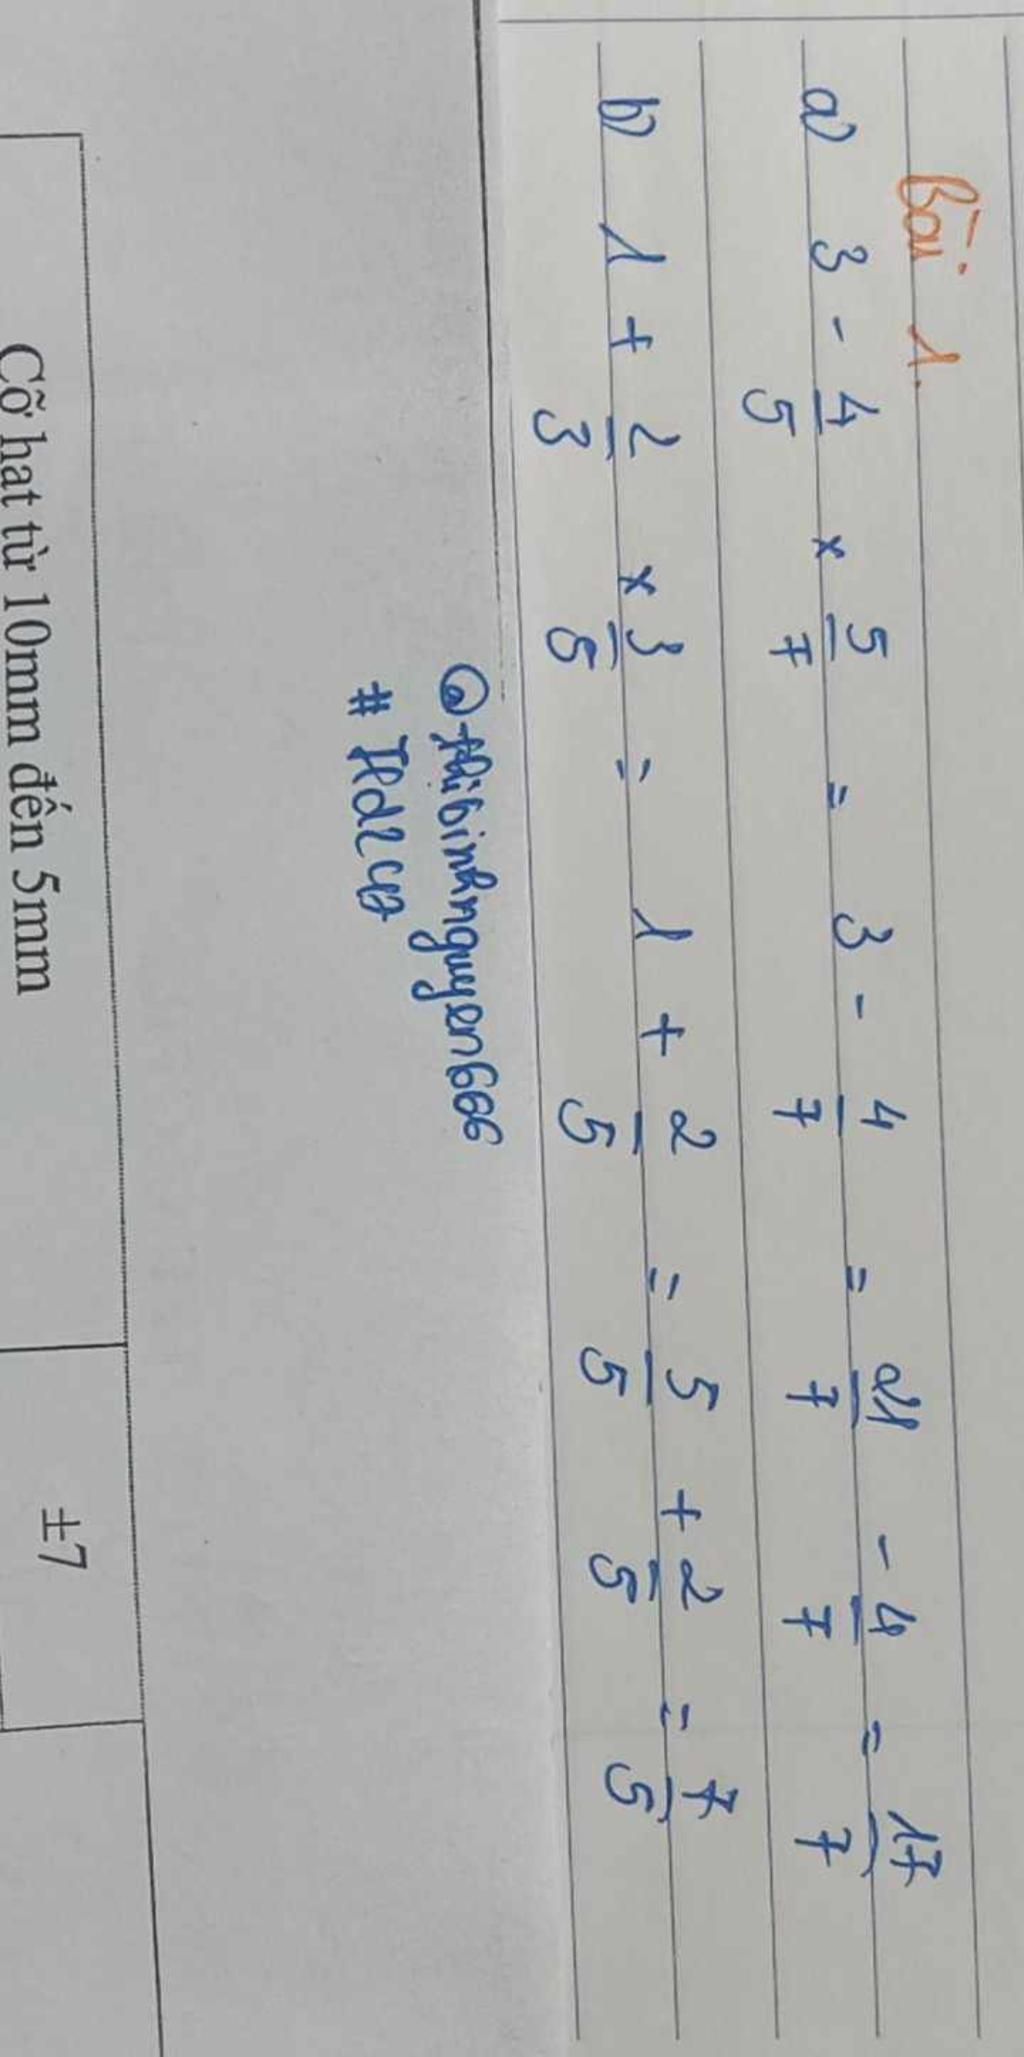 Bài 1.
a) 3 - 4/5 × 5/7 = 3 - 4/7 = 21/7 - 4/7 = 17/7
b) 1 + 2/3 × 3/5 = 1 + 2/5 = 5/5 + 2/5 = 7/5
@thibinhnguyen666
Cỡ hạt từ 10mm đến 5mm
±7